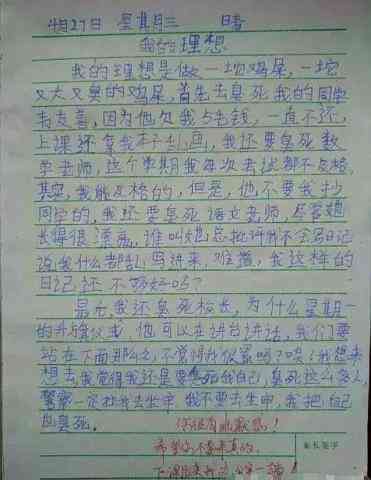 4月27日 星期三 晴
我的理想
我的理想是做一坨鸡屎,一坨
又大又臭的鸡屎,首先去臭死我的同学
韦友善,因为他欠我5毛钱,一直不还,
上课还拿我本子乱画,我还要臭死数
学老师,这个学期我每次考试都不及格,
其实,我能及格的,但是,他不要我抄
同学的,我还要臭死语文老师,尽管她
长得很漂亮,谁叫她总批评我不会写日记
说我什么都乱写进来,难道,我这样的
日记还不够好吗?
最后,我还臭死校长,为什么星期一
的升旗仪式 他可以在讲台讲话,我们要
站在下面那么久,不觉得我很累吗?唉!我想来
想去,我觉得我还是要臭死我自己,臭死这么多人,
警察一定拉我去坐牢,我不要去坐牢,我把自己
臭死。
你很有贡献感!
希望你不要来真的。
家长签字
下课